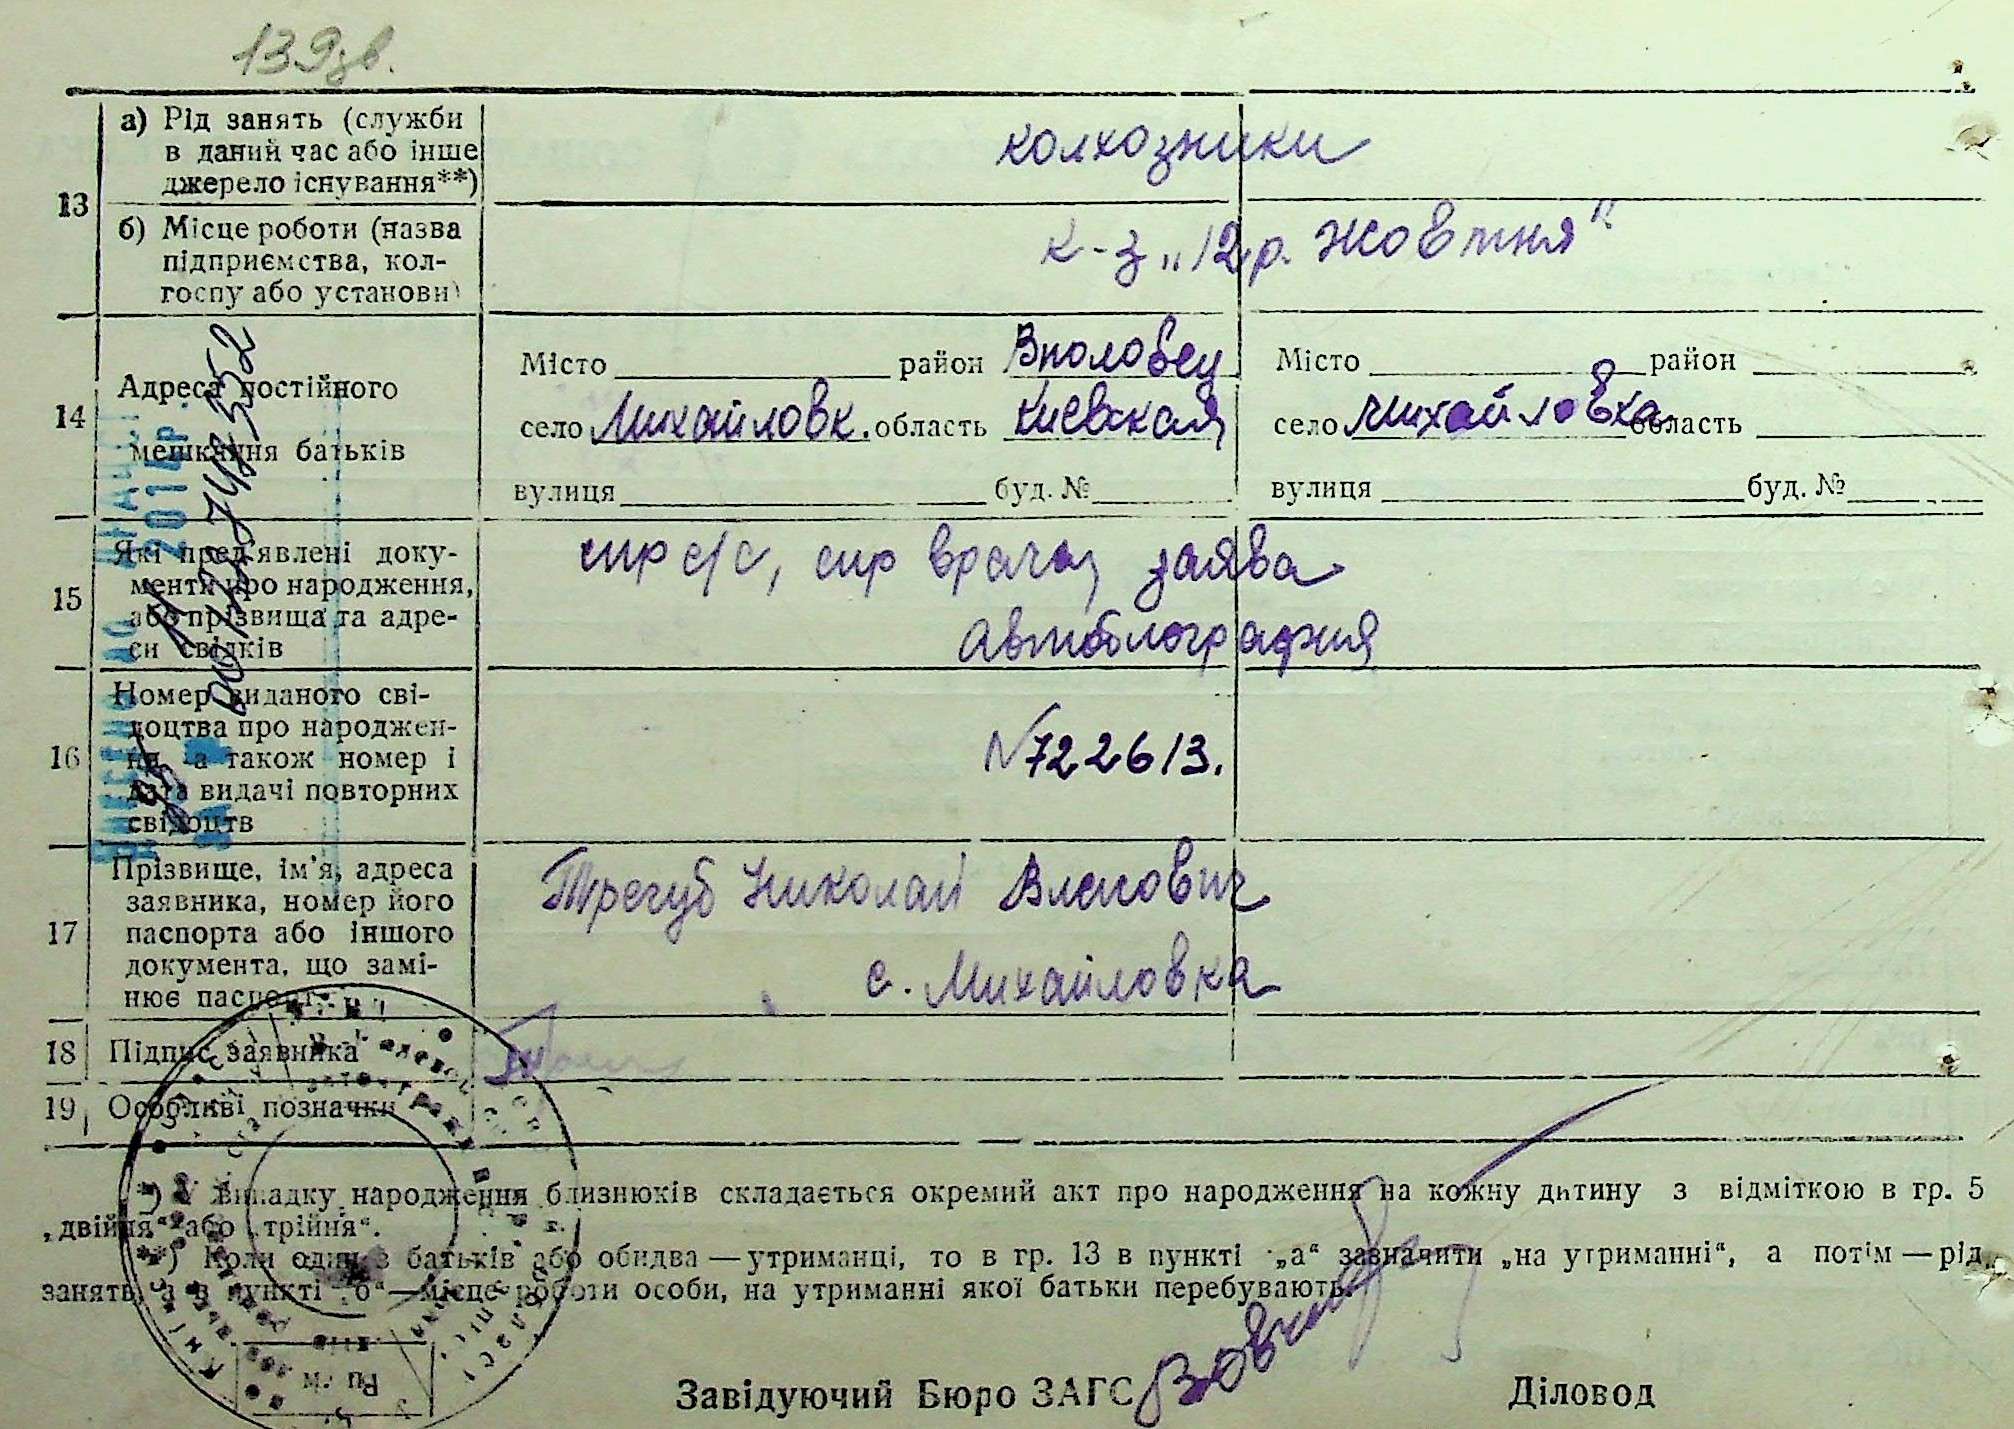 139зв.
а) Рід занять (служби
в даний час або інше
джерело існування**)
колхозники
13
б) Місце роботи (назва
підприємства, кол-
госпу або установи)
к-з „12 р. Жовтня"
14
Адреса постійного
мешкання батьків
Місто район Володовец Місто район
село Михайловк. область Киевская село Михайловка область
вулиця буд. № вулиця буд. №
15
Які пред'явлені доку-
менти про народження,
або прізвища та адре-
си свідків
спр с/с, спр врача, заява
автобіография
16
Номер виданого сві-
доцтва про народжен-
ня, а також номер і
дата видачі повторних
свідоцтв
N722613.
17
Прізвище, ім'я, адреса
заявника, номер його
паспорта або іншого
документа, що замі-
нює паспорт
Трегуб Николай
с. Михайловка
18 Підпис заявника
19 Особливі позначки
*) У випадку народження близнюків складається окремий акт про народження на кожну дитину з відміткою в гр. 5
„двійня" або „трійня".
**) Коли один з батьків або обидва — утриманці, то в гр. 13 в пункті „а" зазначити „на утриманні", а потім — рід
занять, а в пункті „б" — місце роботи особи, на утриманні якої батьки перебувають.
Завідуючий Бюро ЗАГС
Діловод